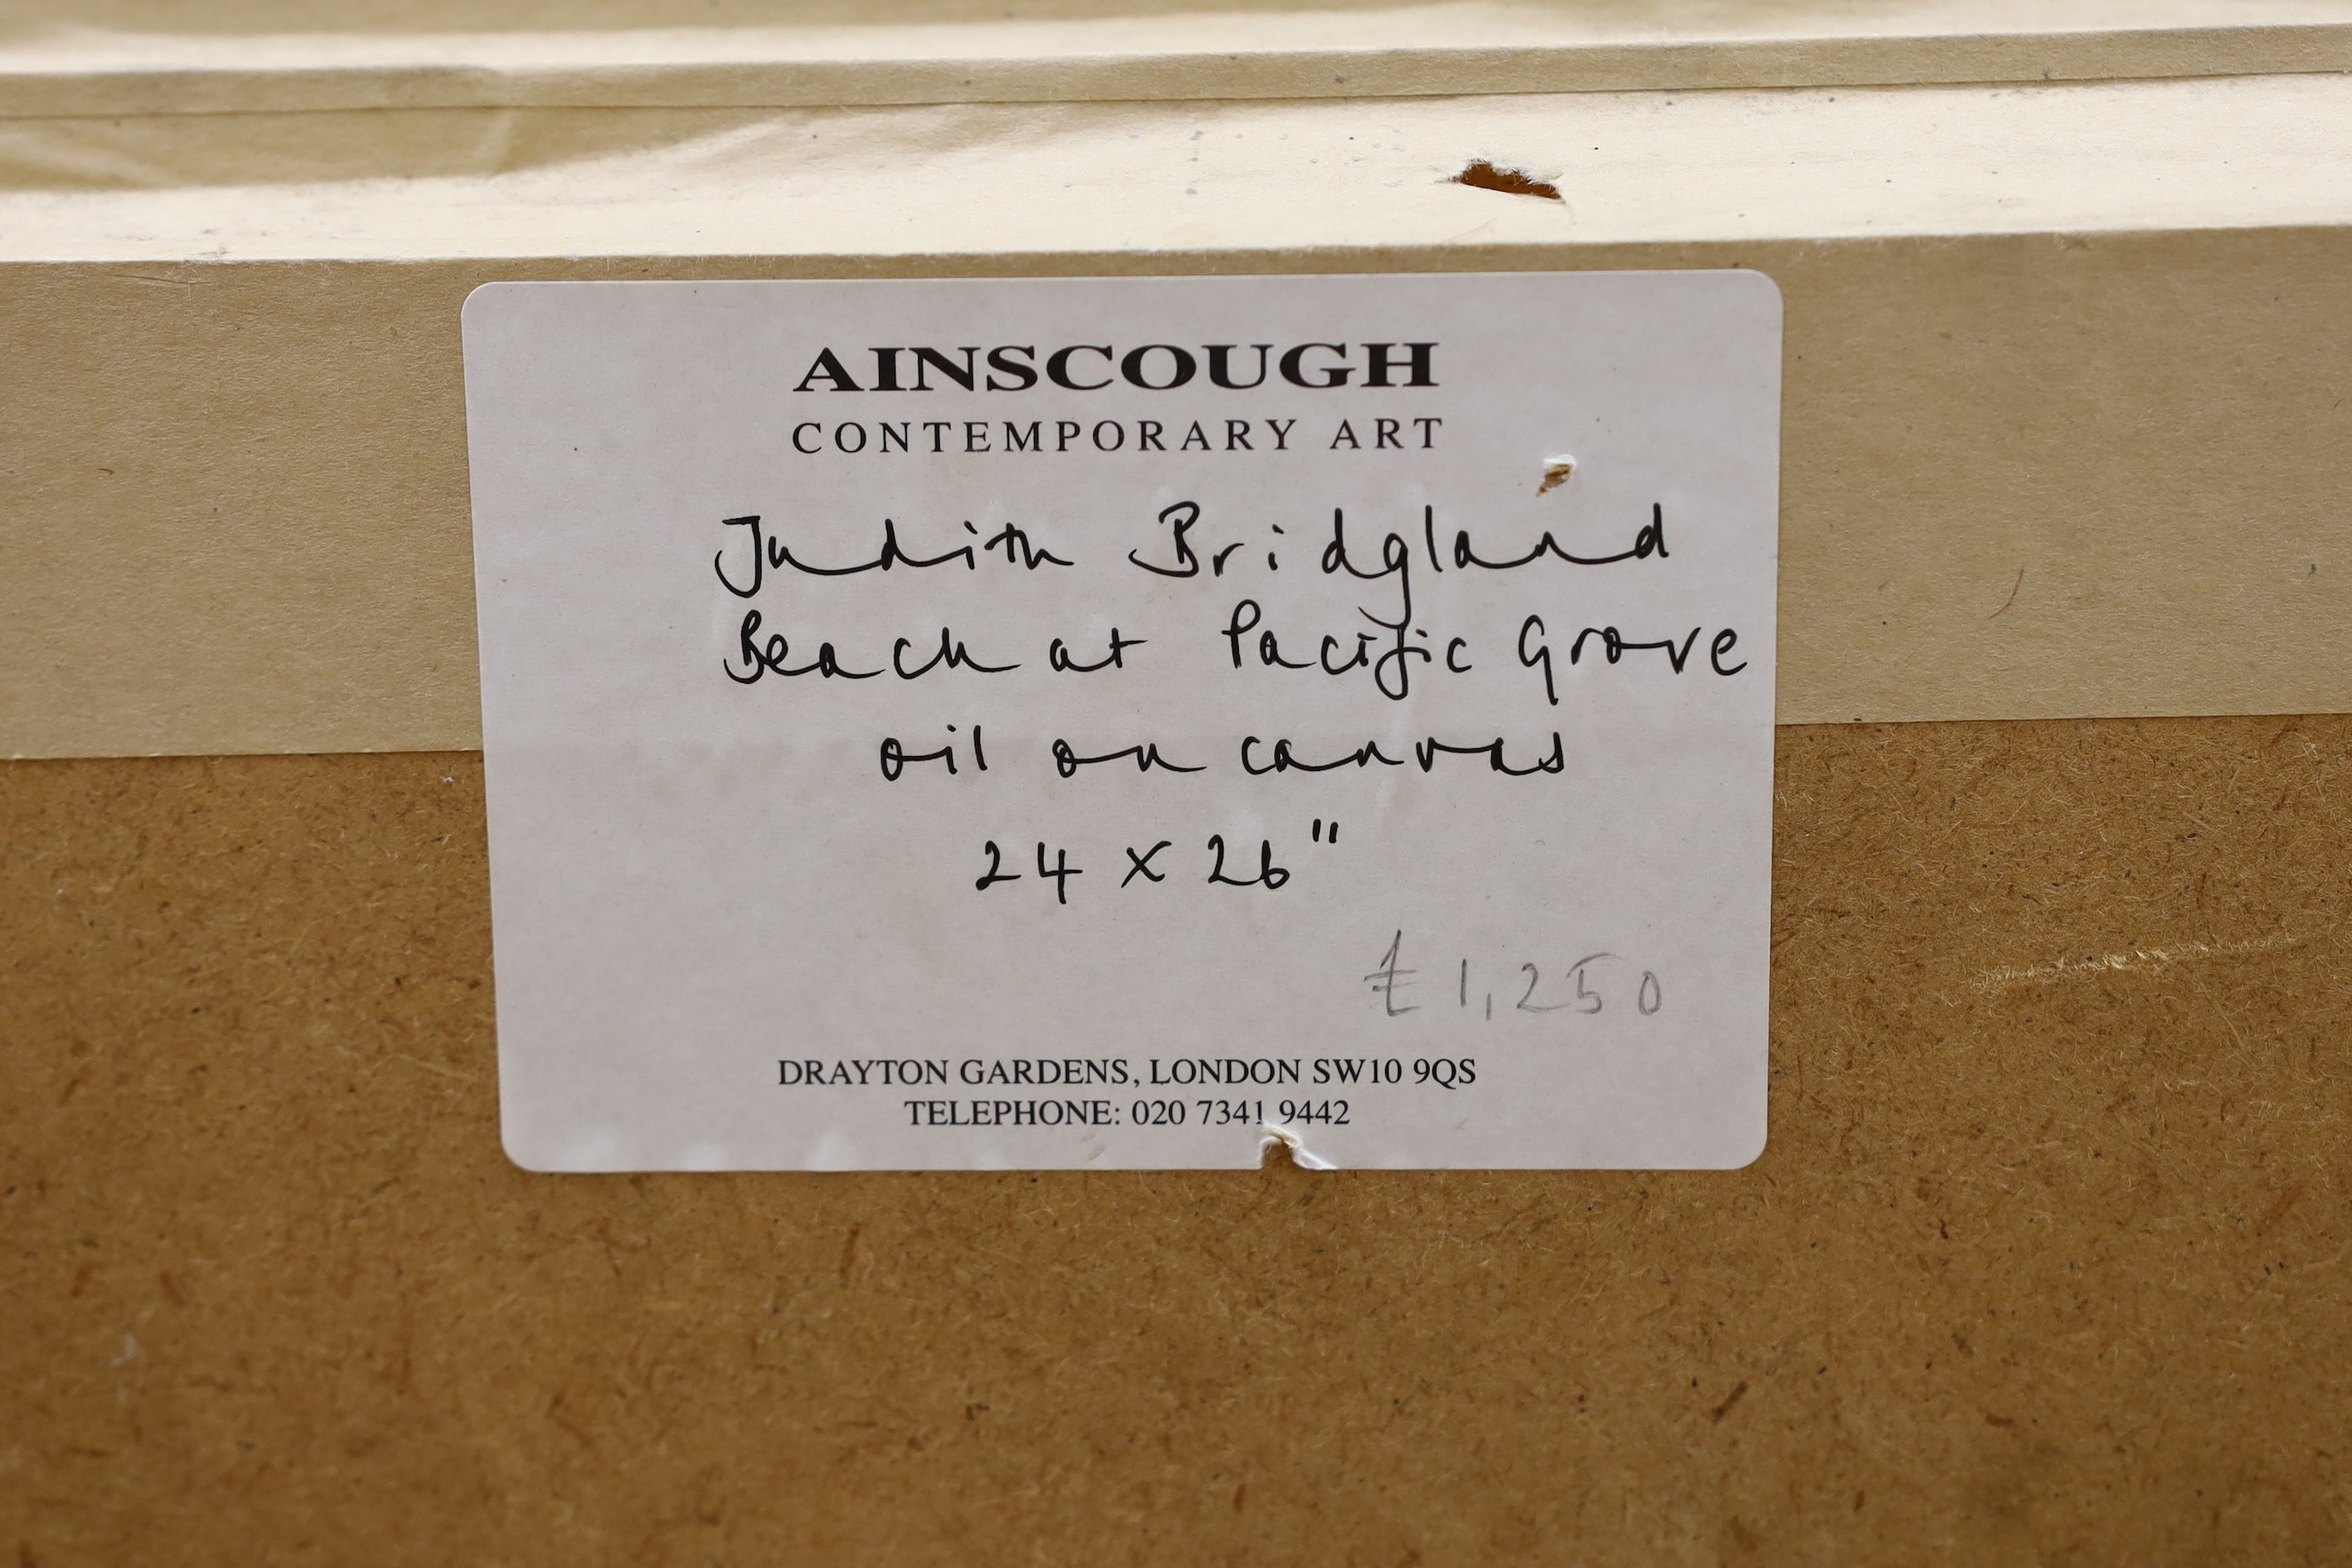 AINSCOUGH
CONTEMPORARY ART
Judith Bridgland
Beach at Pacific Grove
oil on canvas
24 x 26"
£1,250
DRAYTON GARDENS, LONDON SW10 9QS
TELEPHONE: 020 7341 9442